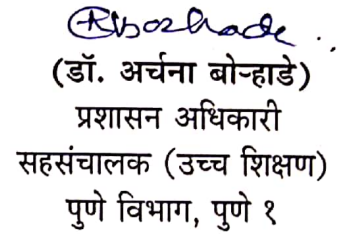 (डॉ. अर्चना बोऱ्हाडे)
प्रशासन अधिकारी
सहसंचालक (उच्च शिक्षण)
पुणे विभाग, पुणे १